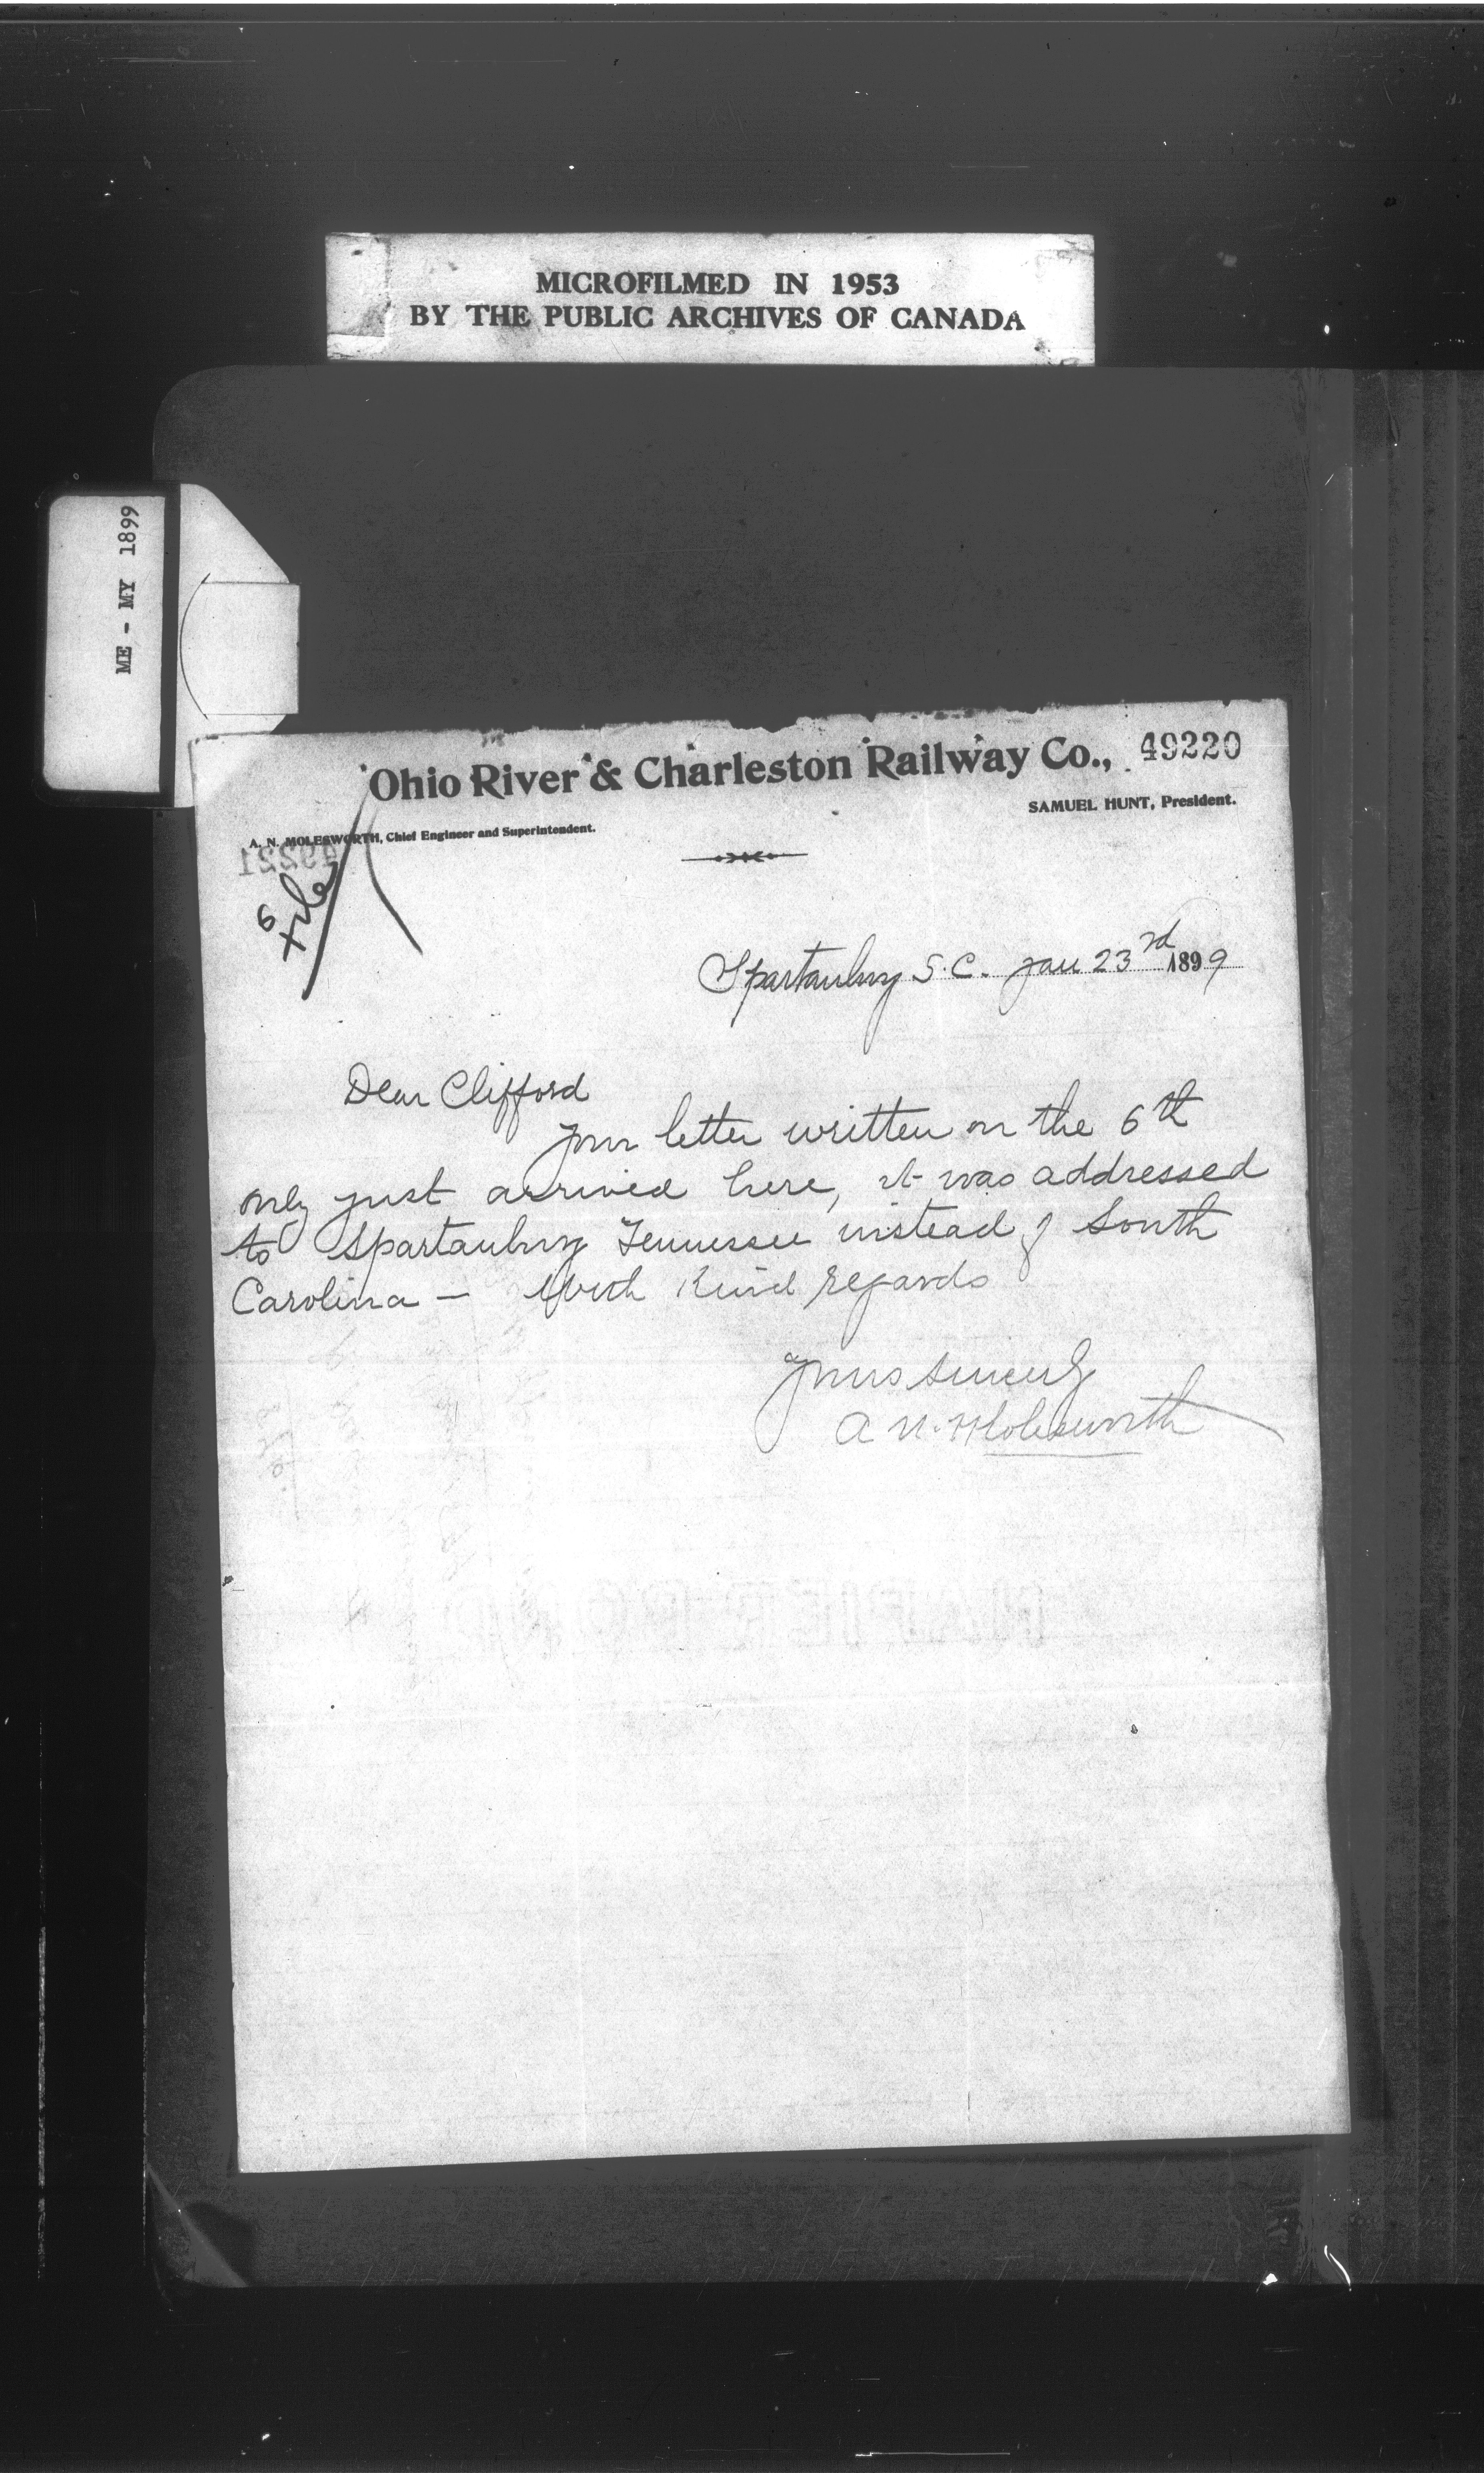 MICROFILMED IN 1953
BY THE PUBLIC ARCHIVES OF CANADA
ME - MY 1899
Ohio River & Charleston Railway Co.,
49220
SAMUEL HUNT, President.
A. N. MOLESWORTH, Chief Engineer and Superintendent.
49221
Spartanburg S.C. Jan 23rd 1899
Dear Clifford
Your letter written on the 6th
only just arrived here, it was addressed
to Spartanburg Tennessee instead of South
Carolina – With kind regards
Yours sincerely
A N. Molesworth